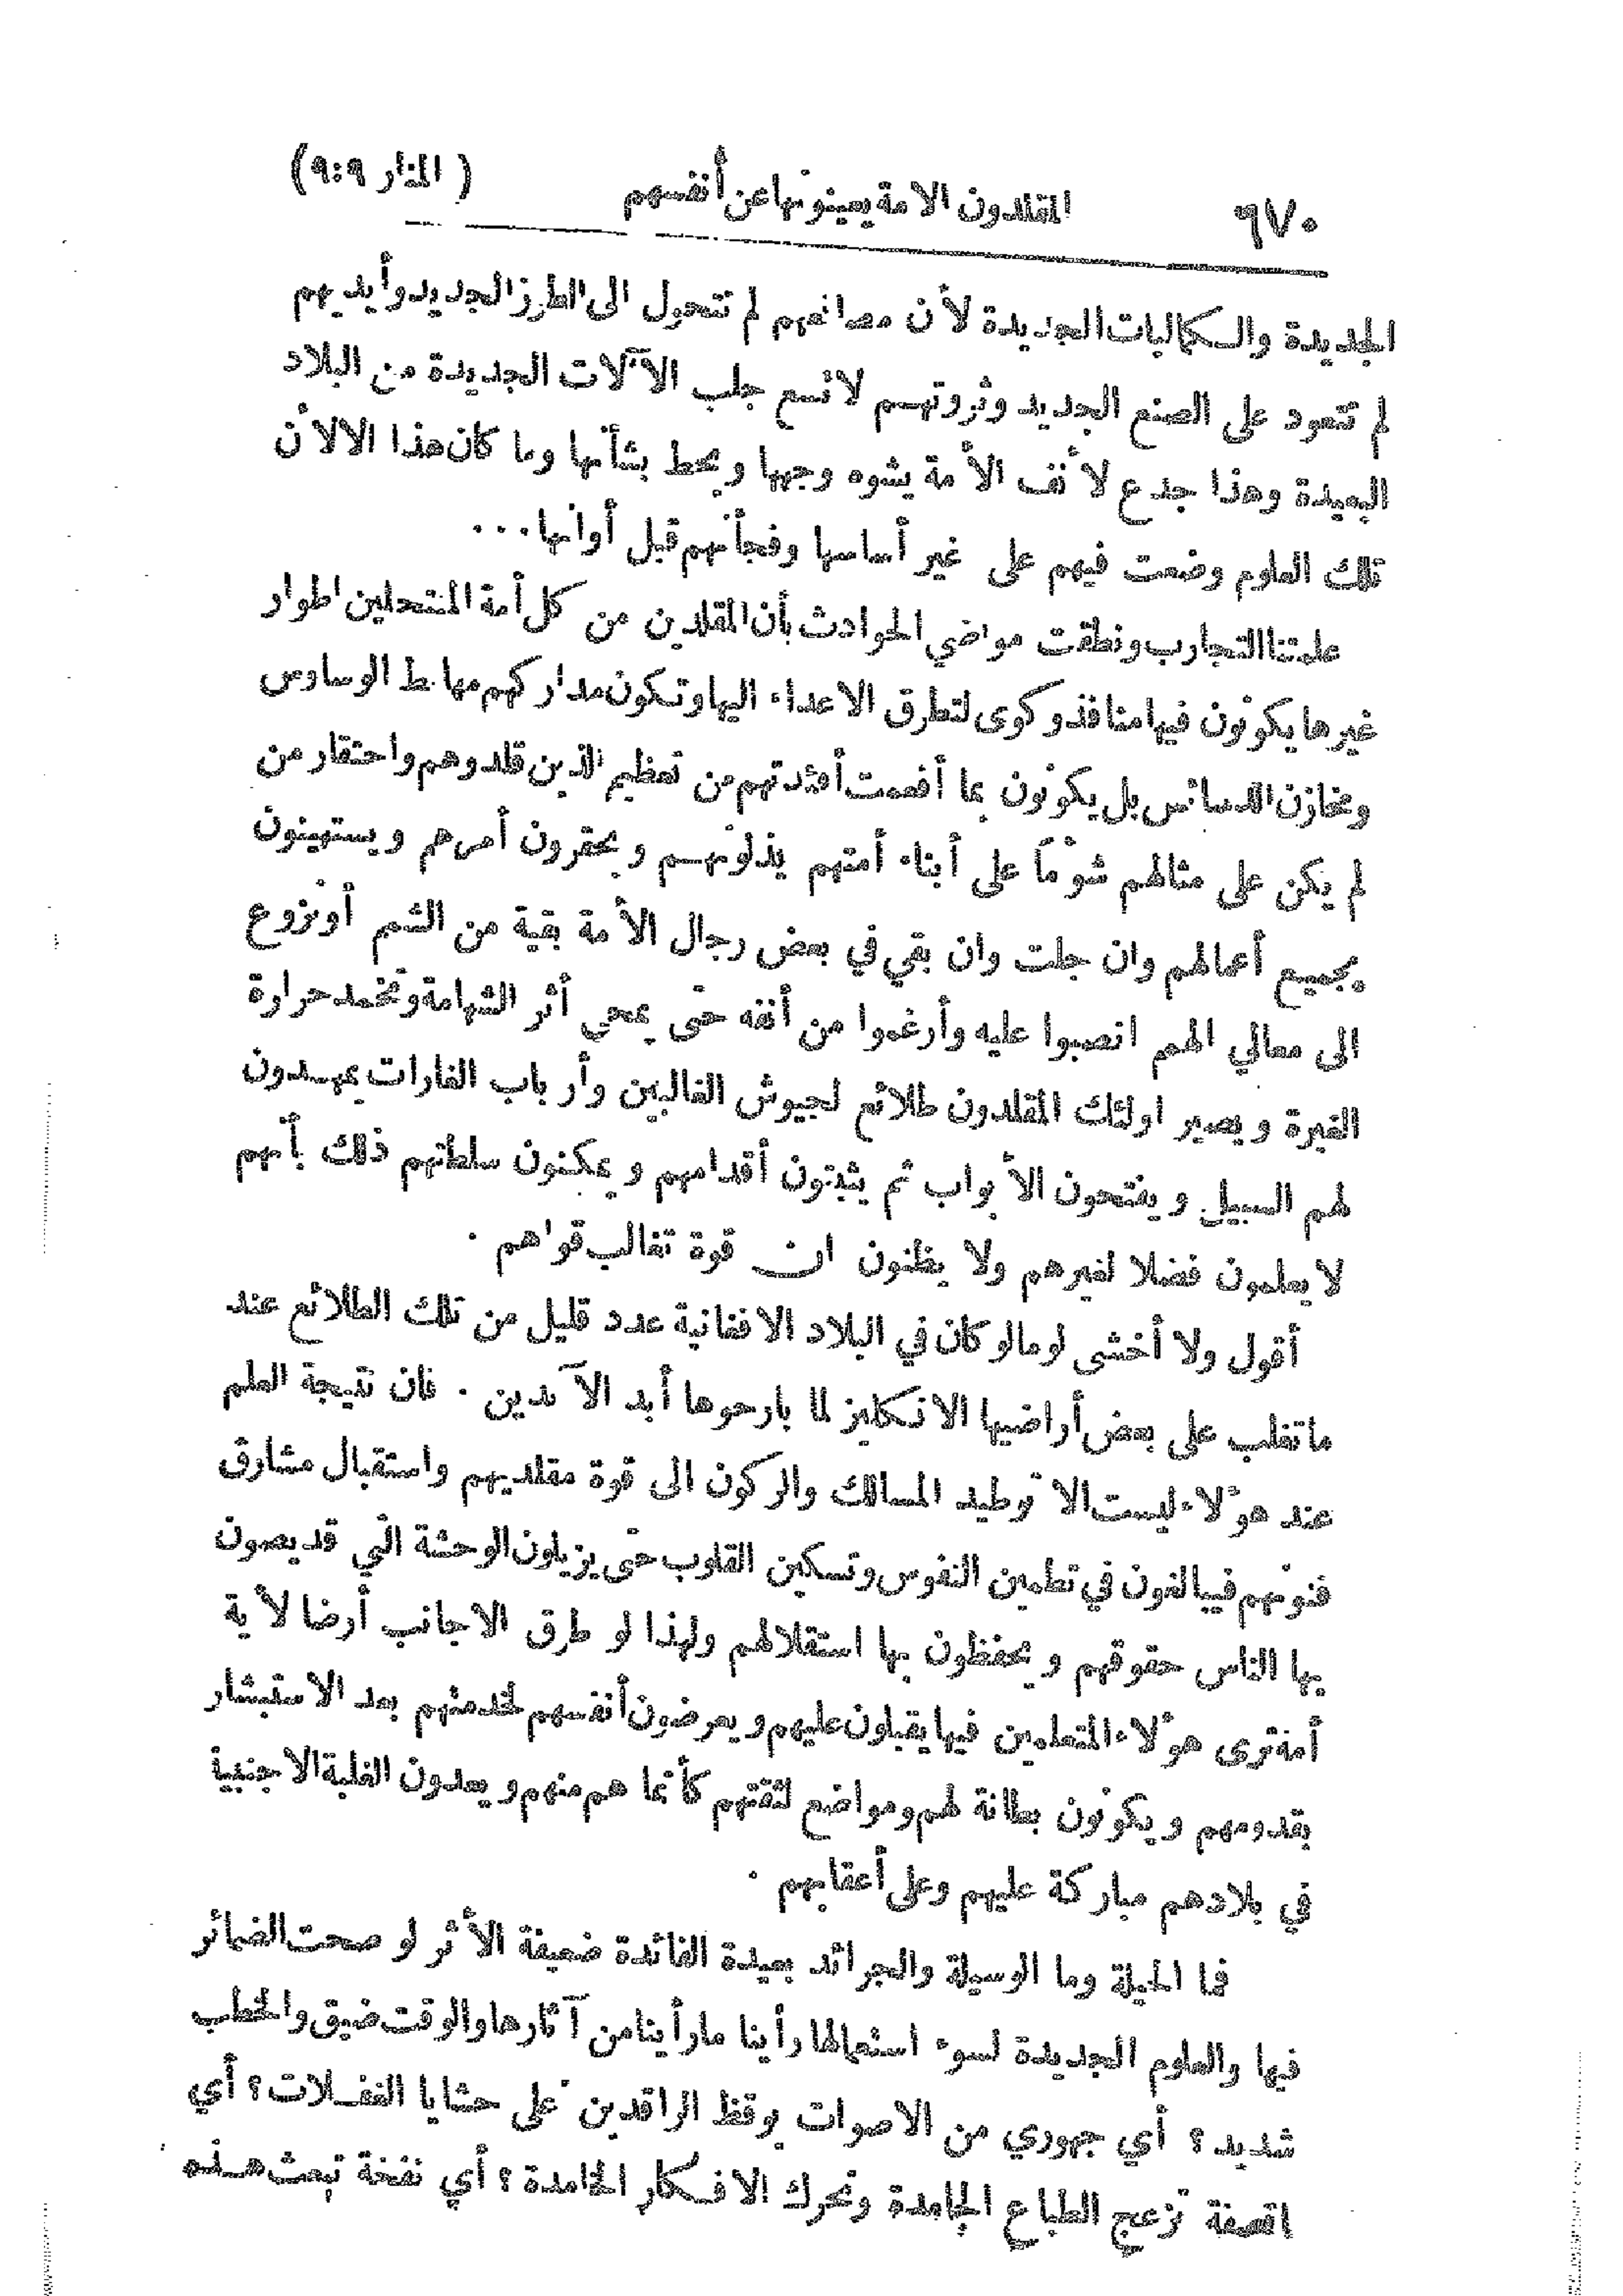 ٦٧٠ المقلدون الامة يعينونها عن أنفسهم ( المنار ٩:٩)
الجديدة والكماليات الجديدة لأن مصانعهم لم تتحول الى الطرز الجديد وأيديهم
لم تتعود على الصنع الجديد وثروتهم لا تسع جلب الآلات الجديدة من البلاد
البعيدة وهذا جدع لأنف الأمة يشوه وجهها ويحط بشأنها وما كان هذا الا لأن
تلك العلوم وضعت فيهم على غير أساسها وفجأتهم قبل أوانها...
علمتنا التجارب ونطقت مواضي الحوادث بأن المقلدين من كل أمة المنتحلين اطوار
غيرها يكونون فيها منافذ وكوى لتطرق الاعداء اليها وتكون مداركهم مهابط الوساوس
ومخازن الدسائس بل يكونون بما أفعمت أفئدتهم من تعظيم الذين قلدوهم واحتقار من
لم يكن على مثالهم شؤماً على أبناء أمتهم يذلونهم ويحقرون أمرهم ويستهينون
بجميع أعمالهم وان جلت وان بقي في بعض رجال الأمة بقية من الشمم أو نزوع
الى معالي الهمم انصبوا عليه وأرغموا من أنفه حتى يمحي أثر الشهامة وتخمد حرارة
الغيرة ويصير اولئك المقلدون طلائع لجيوش الغالبين وأرباب الغارات يمهدون
لهم السبيل ويفتحون الأبواب ثم يثبتون أقدامهم ويمكنون سلطتهم ذلك بأنهم
لا يعلمون فضلا لغيرهم ولا يظنون ان قوة تغالب قواهم .
أقول ولا أخشى لوما لو كان في البلاد الافغانية عدد قليل من تلك الطلائع عند
ما تغلب على بعض أراضيها الانكليز لما بارحوها أبد الآبدين . فان نتيجة العلم
عند هؤلاء ليست الا توطيد المسالك والركون الى قوة مقلديهم واستقبال مشارق
فنونهم فيبالغون في تطمين النفوس وتسكين القلوب حتى يزيلون الوحشة التي قد يصون
بها الناس حقوقهم ويحفظون بها استقلالهم ولهذا لو طرق الاجانب أرضا لأية
أمة ترى هؤلاء المتعلمين فيها يقبلون عليهم ويعرضون أنفسهم لخدمتهم بعد الاستبشار
بقدومهم ويكونون بطانة لهم ومواضع لثقتهم كأنما هم منهم ويعدون الغلبة الاجنبية
في بلادهم مباركة عليهم وعلى أعقابهم .
فما الحيلة وما الوسيلة والجرائد بعيدة الفائدة ضعيفة الأثر لو صحت الضمائر
فيها والعلوم الجديدة لسوء استعمالها رأينا ما رأينا من آثارها والوقت ضيق والخطب
شديد ؟ أي جهوري من الاصوات يوقظ الراقدين على حشايا الغفلات ؟ أي
اقصفة تزعج الطباع الجامدة وتحرك الافكار الخامدة ؟ أي نفخة تبعث هذه